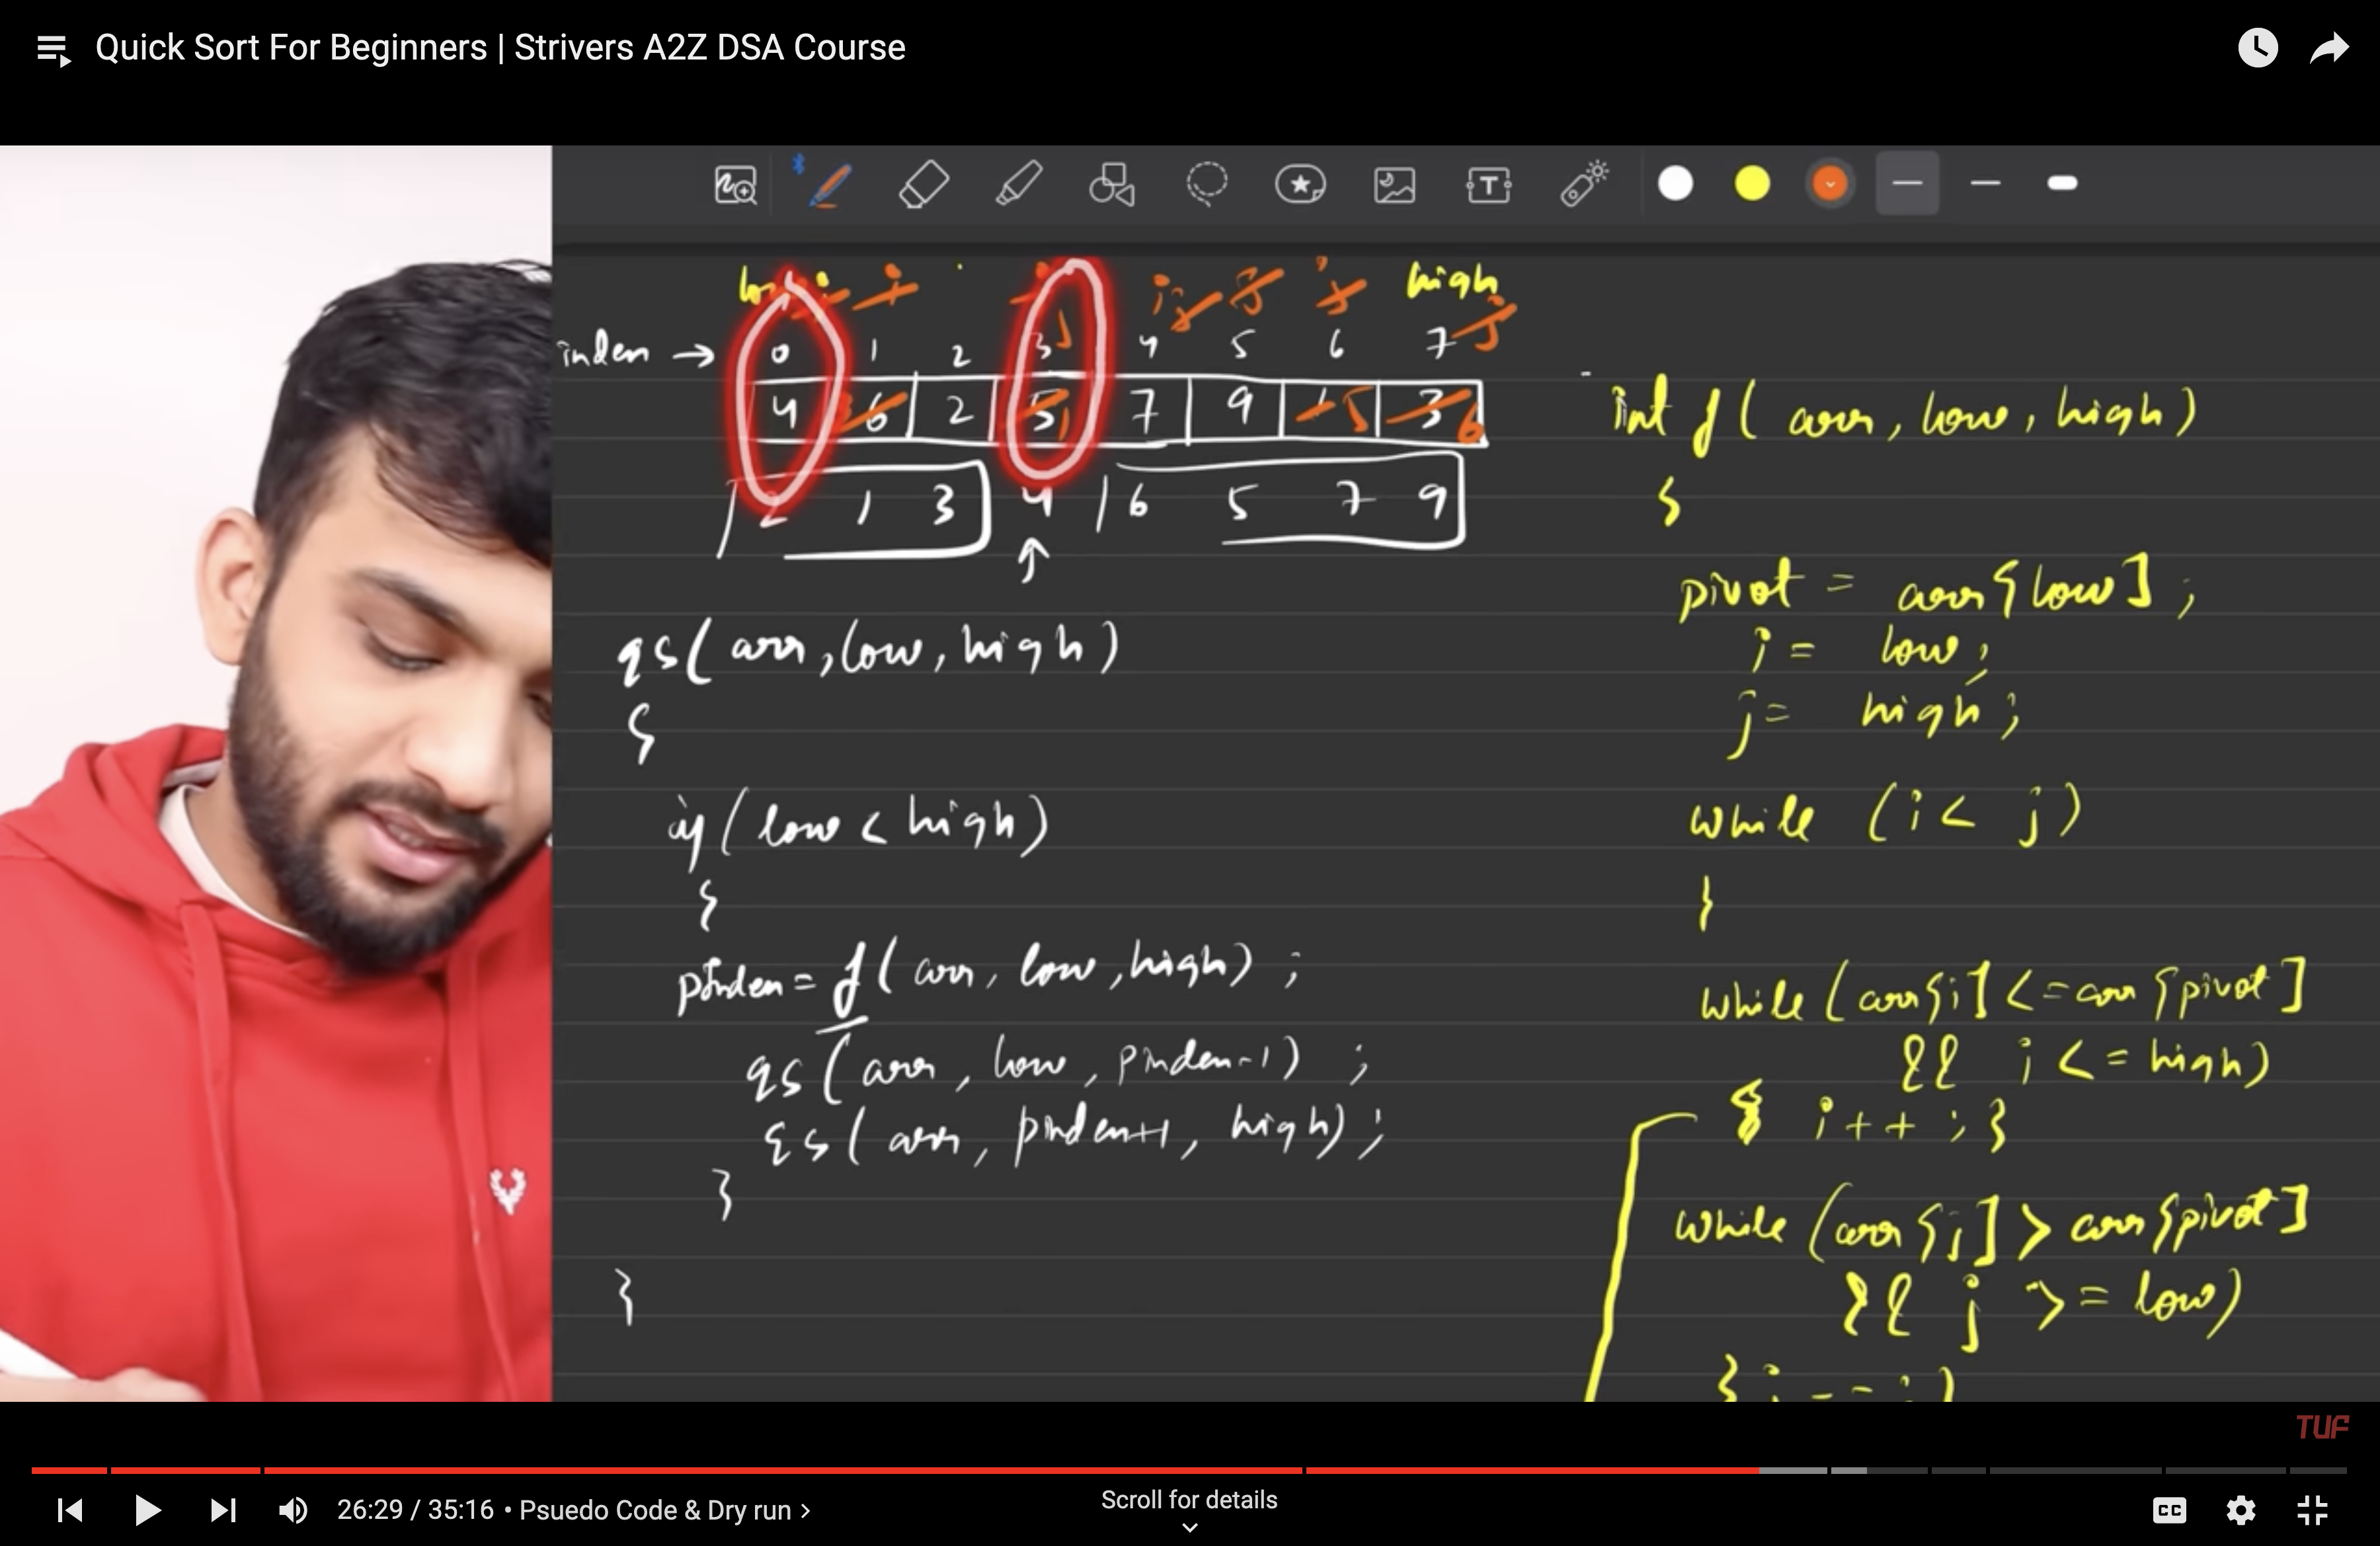 Quick Sort For Beginners | Strivers A2Z DSA Course
low high
index → 0 1 2 3 j 4 5 6 7 j
4 6 2 5 1 7 9 1 5 3 6
2 1 3 4 6 5 7 9
↑
qs( arr, low, high )
{
if ( low < high )
{
pIndex = f( arr, low, high ) ;
qs ( arr, low, pIndex-1 ) ;
qs ( arr, pIndex+1, high ) ;
}
}
int f ( arr, low, high )
{
pivot = arr[low] ;
i = low ;
j = high ;
while ( i < j )
}
while ( arr[i] <= arr[pivot]
&& i <= high )
{ i++ ; }
while ( arr[j] > arr[pivot]
&& j >= low )
TUF
26:29 / 35:16 • Psuedo Code & Dry run >
Scroll for details
CC